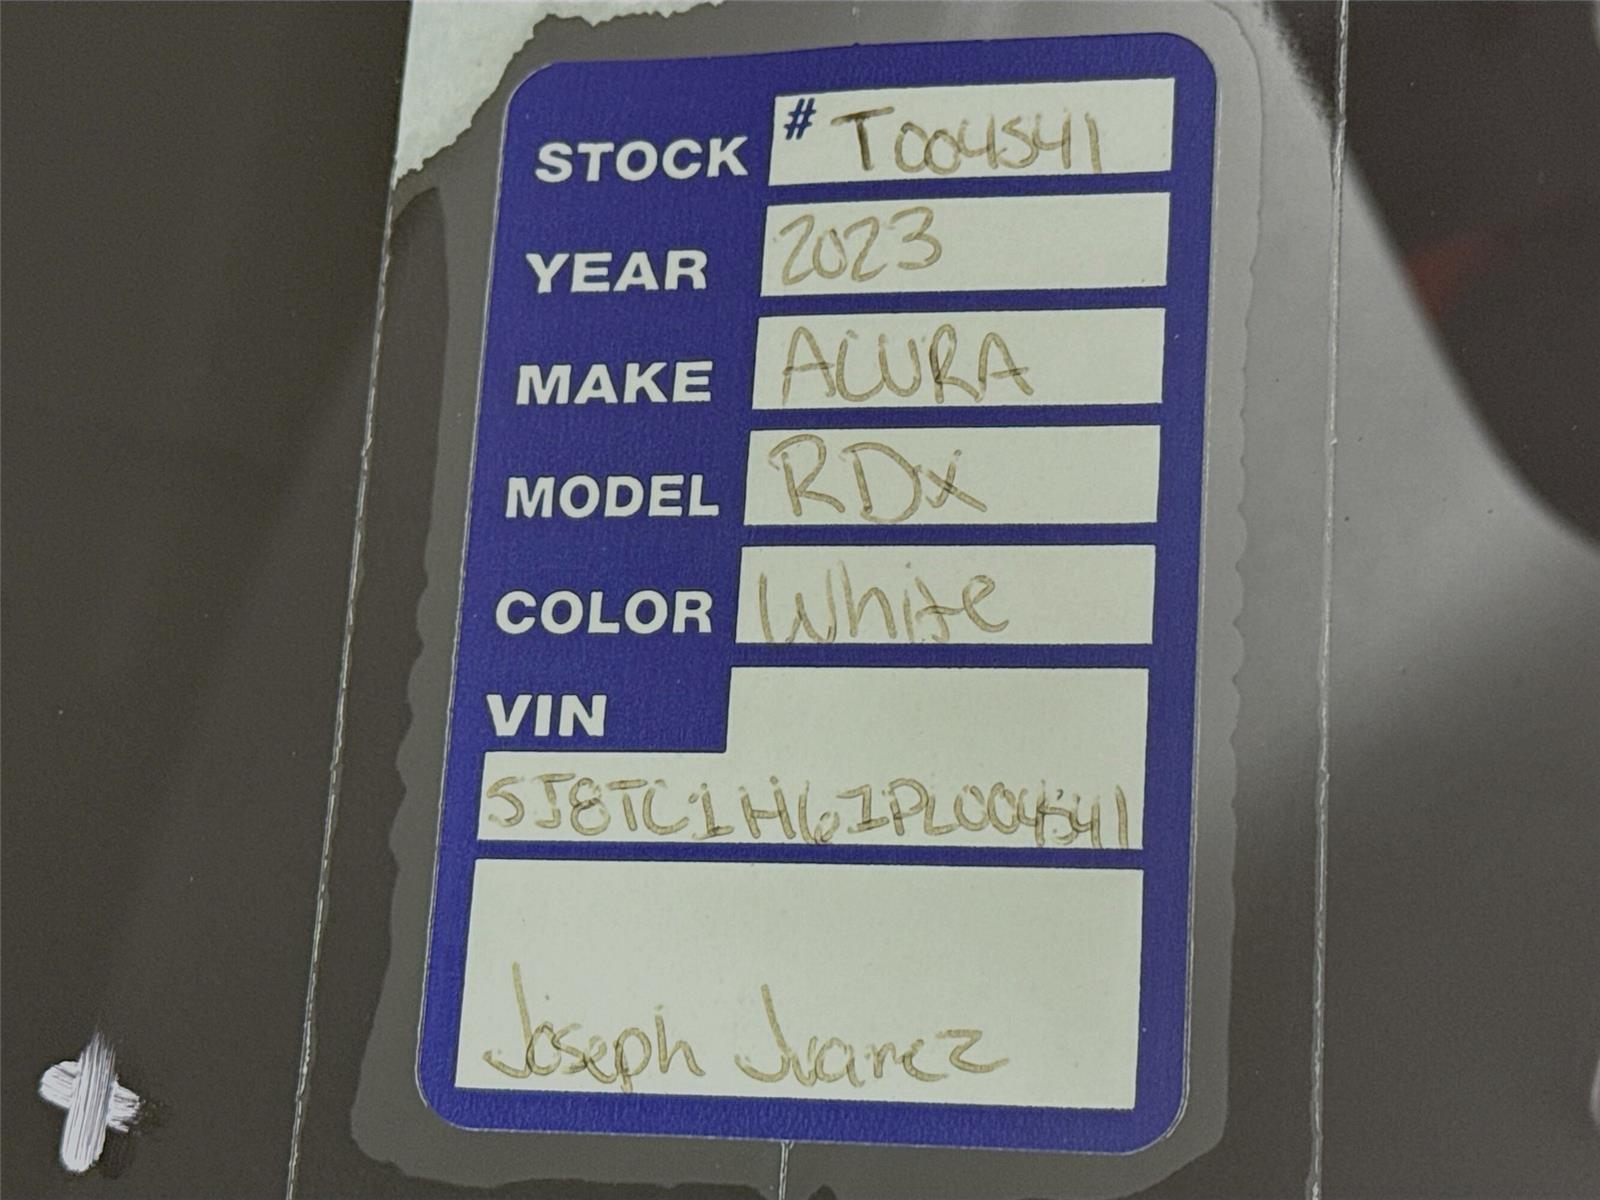 STOCK # T004541
YEAR 2023
MAKE ACURA
MODEL RDX
COLOR White
VIN
5J8TC1H61PL004541
Joseph Juarez